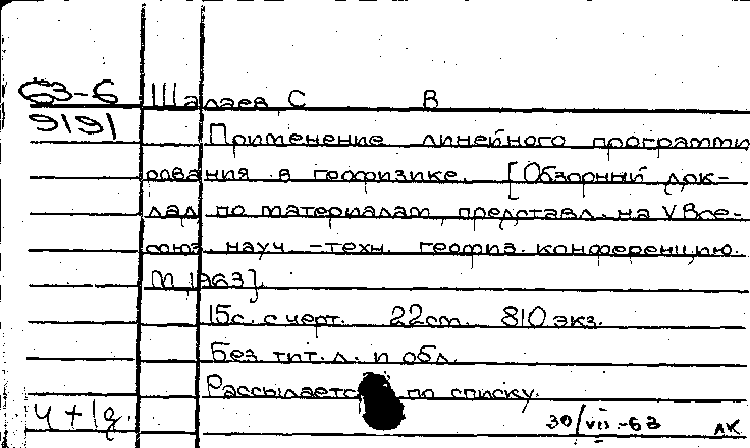 63-6 Шалаев С В
9191 Применение линейного программи
рования в геофизике. [Обзорный док-
лад по материалам, представл. на V Все-
союз. науч.-техн. геофиз. конференцию.
М, 1963].
15с. с черт. 22см. 810 экз.
Без тит. л. и обл.
Рассылается по списку.
4+1д. 30/VII-63 ЛК